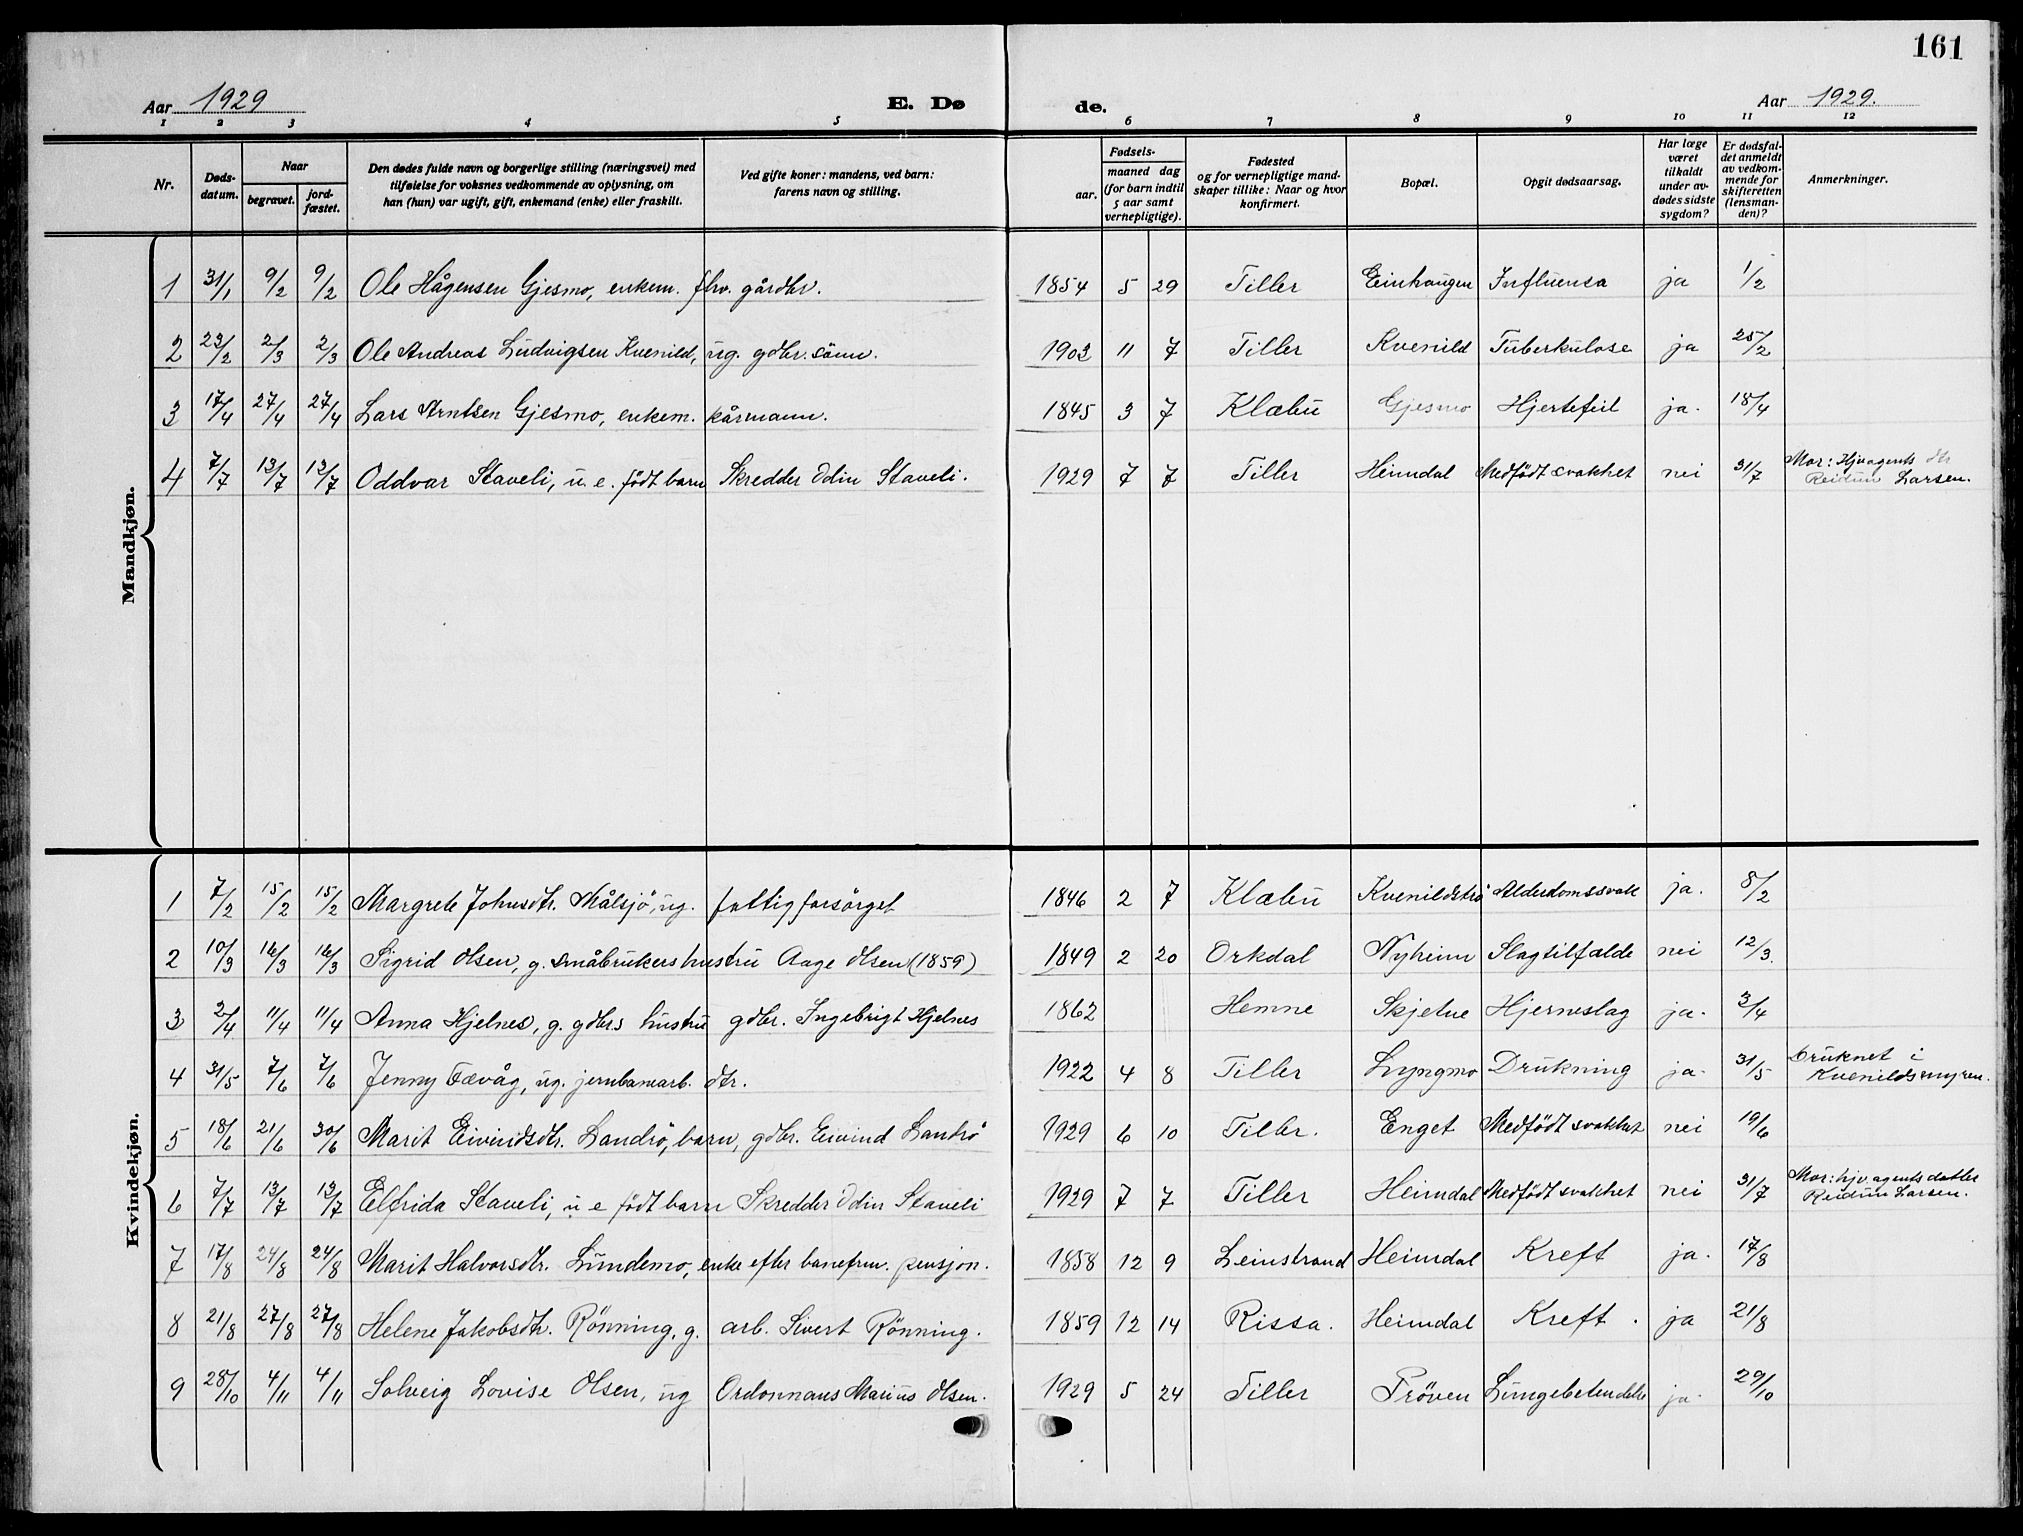 161
Aar 1929 E. Dø de. Aar 1929.
1 2 3 4 5 6 7 8 9 10 11 12
Nr. Døds-datum. Naar begravet. jord-fæstet. Den dødes fulde navn og borgerlige stilling (næringsvei) med tilføielse for voksnes vedkommende av oplysning, om han (hun) var ugift, gift, enkemand (enke) eller fraskilt. Ved gifte koner: mandens, ved barn: farens navn og stilling. Fødsels- aar. maaned dag (for barn indtil 5 aar samt vernepligtige). Fødested og for vernepligtige mand-skaper tillike: Naar og hvor konfirmert. Bopæl. Opgit dødsaarsag. Har læge været tilkaldt under av-dødes sidste sygdom? Er dødsfal-det anmeldt av vedkom-mende for skifteretten (lensman-den)? Anmerkninger.
Mandkjøn.
1 31/1 9/2 9/2 Ole Hågensen Gjesmo, enkem. fhv. gårdbr. 1854 5 29 Tiller Einhaugen Influensa ja 1/2
2 23/2 2/3 2/3 Ole Andreas Ludvigsen Kvenild, ug. gdbr. sönn. 1903 11 7 Tiller Kvenild Tuberkulose ja 25/2
3 17/4 27/4 27/4 Lars Arntsen Gjesmo, enkem. kårmann. 1845 3 7 Klæbu Gjesmo Hjertefeil ja. 18/4
4 7/7 13/7 13/7 Oddvar Staveli, u. e. födt barn Skredder Odin Staveli. 1929 7 7 Tiller Heimdal Medfödt svakhet nei 31/7 Mor: Hjv agents dtr Reidun Larsen.
Kvindekjøn.
1 7/2 15/2 15/2 Margrete Johnsdtr. Målsjö, ug. fattigforsörget 1846 2 7 Klæbu Kvenildströ Alderdomssvak ja. 8/2
2 10/3 16/3 16/3 Sigrid Olsen, g. småbrukers hustru Aage Olsen (1859) 1849 2 20 Orkdal Nyheim Slagtilfælde nei 12/3.
3 2/4 11/4 11/4 Anna Hjelnes, g. gdbrs hustru gdbr. Ingebrigt Hjelnes 1862 Hemne Skjetne Hjerneslag ja. 3/4
4 31/5 7/6 7/6 Jenny Fævåg, ug. jernbanearb. dtr. 1922 4 8 Tiller Lyngmo Drukning ja. 31/5 Druknet i Kvenildsmyren.
5 18/6 21/6 30/6 Marit Eivindsdtr. Landrö, barn, gdbr. Eivind Landrö 1929 6 10 Tiller. Enget Medfödt svakhet nei 19/6
6 7/7 13/7 13/7 Elfrida Staveli, u e födt barn Skredder Odin Staveli 1929 7 7 Tiller Heimdal Medfödt svakhet nei 31/7 Mor: hjv. agents datter Reidun Larsen.
7 17/8 24/8 24/8 Marit Halvorsdtr. Lundemo, enke efter baneform. pensjon. 1858 12 9 Leinstrand Heimdal Kreft ja. 17/8
8 21/8 27/8 27/8 Helene Jakobsdtr. Rönning, g. arb. Sivert Rönning. 1859 12 14 Rissa. Heimdal Kreft. ja 21/8
9 28/10 4/11 4/11 Solveig Lovise Olsen, ug Ordonnans Marius Olsen. 1929 5 24 Tiller Pröven Lungebetendelse ja. 29/10